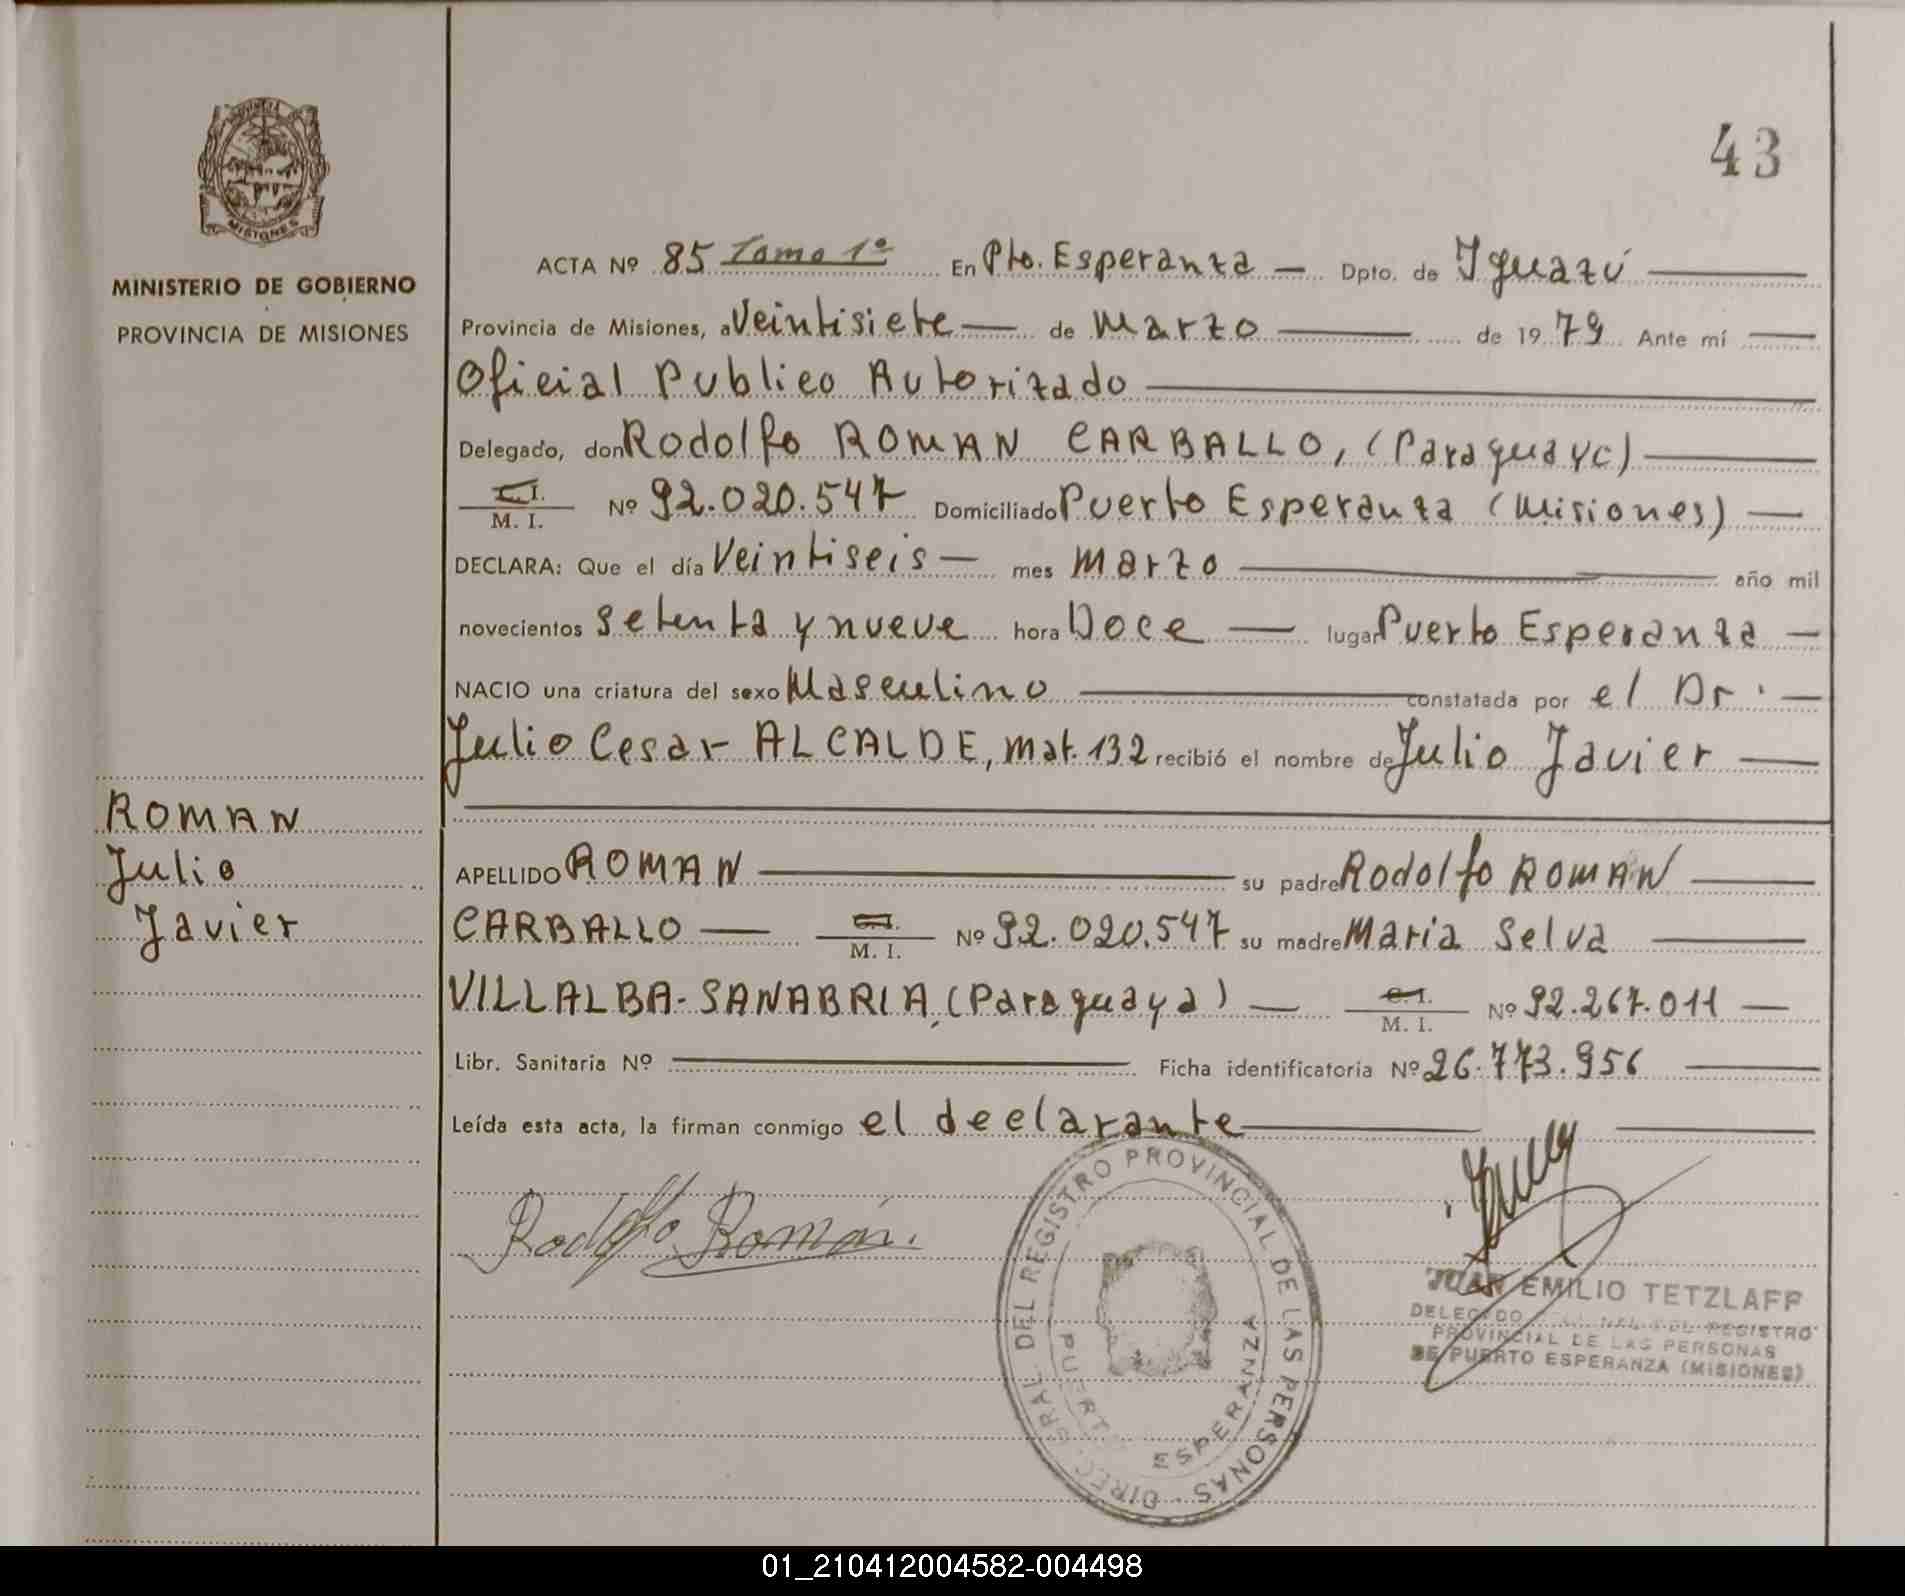 43
MISIONES
MINISTERIO DE GOBIERNO
PROVINCIA DE MISIONES
ROMAN
Julio
Javier
ACTA Nº 85 Tomo 1º En Pto. Esperanza — Dpto. de Iguazú
Provincia de Misiones, a Veintisiete — de Marzo — de 1979 Ante mí
Oficial Publico Autorizado
Delegado, don Rodolfo ROMAN CARBALLO, (Paraguayo)
C.I. M. I. Nº 92.020.547 Domiciliado Puerto Esperanza (Misiones) —
DECLARA: Que el día Veintiseis — mes Marzo — año mil
novecientos setenta y nueve hora Doce — lugar Puerto Esperanza —
NACIO una criatura del sexo Masculino — constatada por el Dr. —
Julio Cesar ALCALDE, Mat. 132 recibió el nombre de Julio Javier —
APELLIDO ROMAN — su padre Rodolfo ROMAN —
CARBALLO — C.I. M. I. Nº 92.020.547 su madre Maria Selva —
VILLALBA-SANABRIA, (Paraguaya) — C.I. M. I. Nº 92.267.011 —
Libr. Sanitaria Nº — Ficha identificatoria Nº 26.773.956 —
Leída esta acta, la firman conmigo el declarante —
Rodolfo Román.
DIREC. GRAL. DEL REGISTRO PROVINCIAL DE LAS PERSONAS
PUERTO ESPERANZA
JUAN EMILIO TETZLAFF
DELEGADO DEL REGISTRO
PROVINCIAL DE LAS PERSONAS
DE PUERTO ESPERANZA (MISIONES)
01_210412004582-004498